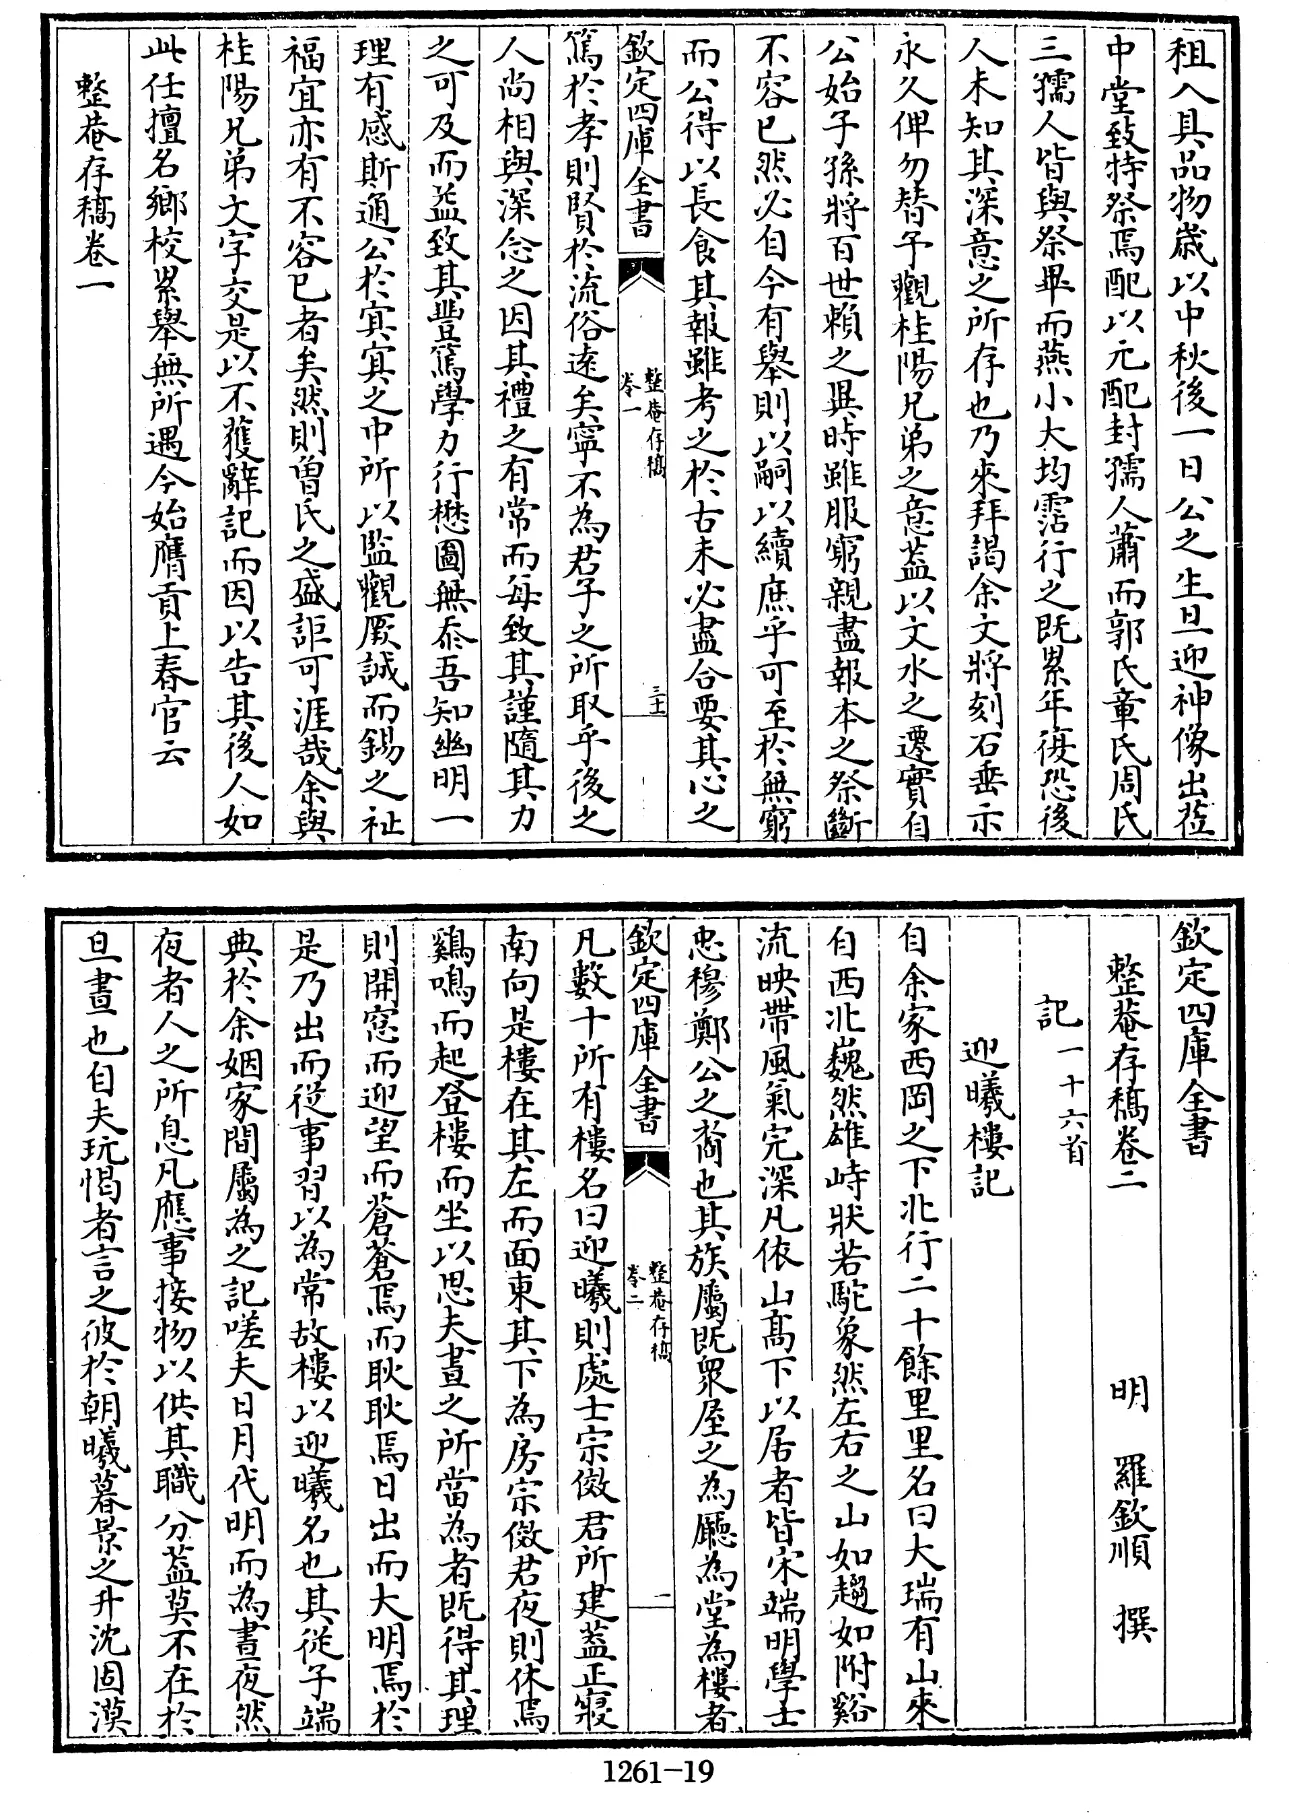 租入具品物歳以中秋後一日公之生旦迎神像出蒞
中堂致特祭焉配以元配封孺人蕭而郭氏章氏周氏
三孺人皆與祭畢而燕小大均霑行之既累年復恐後
人未知其深意之所存也乃來拜謁余文將刻石垂示
永久俾勿替予觀桂陽兄弟之意葢以文水之遷實自
公始子孫將百世賴之異時雖服窮親盡報本之祭斷
不容已然必自今有舉則以嗣以續庶乎可至於無窮
而公得以長食其報雖考之於古未必盡合要其心之
欽定四庫全書
整菴存稿
卷一
三十
篤於孝則賢於流俗逺矣寧不為君子之所取乎後之
人尚相與深念之因其禮之有常而每致其謹隨其力
之可及而益致其豐篤學力行懋圖無忝吾知幽明一
理有感斯通公於冥冥之中所以監觀厥誠而錫之祉
福宜亦有不容已者矣然則曽氏之盛詎可涯哉余與
桂陽兄弟文字交是以不獲辭記而因以告其後人如
此任擅名鄉校累舉無所遇今始膺貢上春官云
整菴存稿卷一
欽定四庫全書
整菴存稿卷二
明 羅欽順 撰
記一十六首
迎曦樓記
自余家西岡之下北行二十餘里里名曰大瑞有山來
自西北巍然雄峙狀若駝象然左右之山如趨如附谿
流映帶風氣完深凡依山髙下以居者皆宋端明學士
忠穆鄭公之裔也其族屬既衆屋之為廳為堂為樓者
欽定四庫全書
整菴存稿
卷二
一
凡數十所有樓名曰迎曦則處士宗儆君所建葢正寢
南向是樓在其左而面東其下為房宗儆君夜則休焉
鷄鳴而起登樓而坐以思夫晝之所當為者既得其理
則開窓而迎望而蒼蒼焉而耿耿焉日出而大明焉於
是乃出而從事習以為常故樓以迎曦名也其從子端
典於余姻家間屬為之記嗟夫日月代明而為晝夜然
夜者人之所息凡應事接物以供其職分葢莫不在於
旦晝也自夫玩愒者言之彼於朝曦暮景之升沈固漠
1261-19